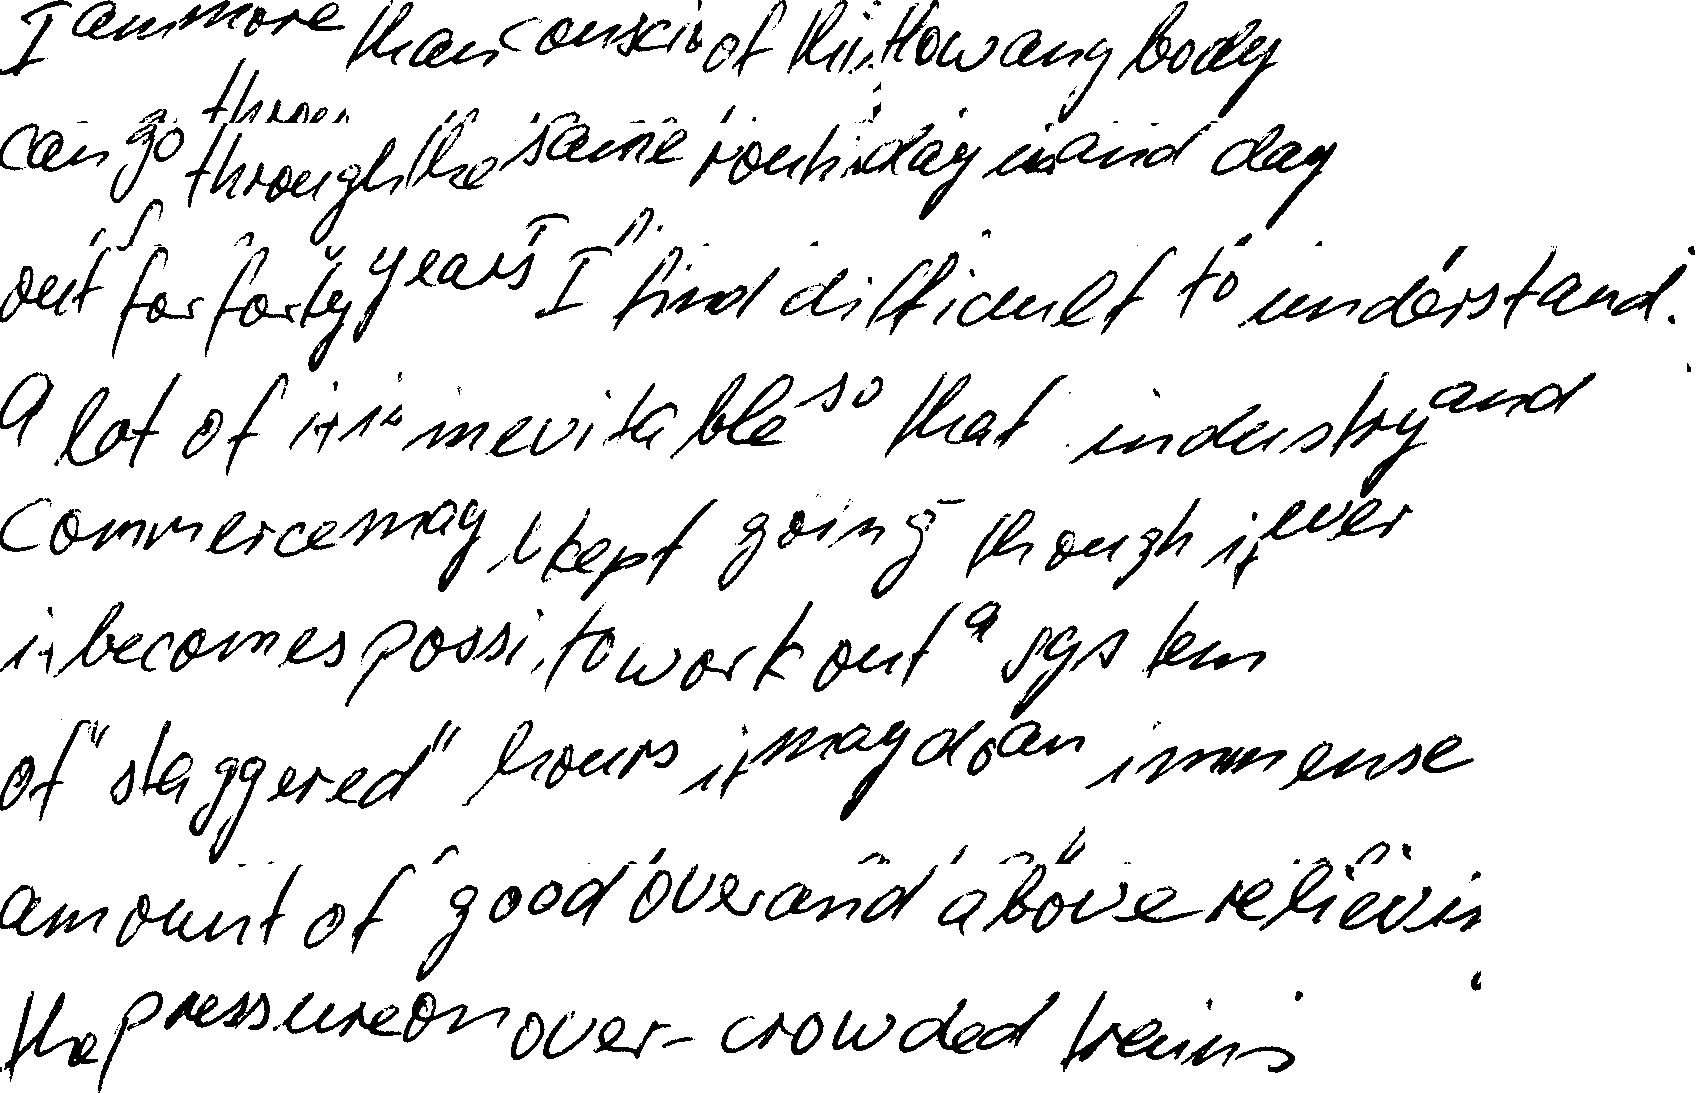 I am more than conscio of this. How any body
can go through the same routin day in and day
out for forty years I find difficult to understand.
A lot of it is inevitable so that industry and
commerce may kept going though if ever
it becomes possi. to work out a system
of "staggered" hours it may do an immense
amount of good over and above relievin
the pressure on over-crowded trains